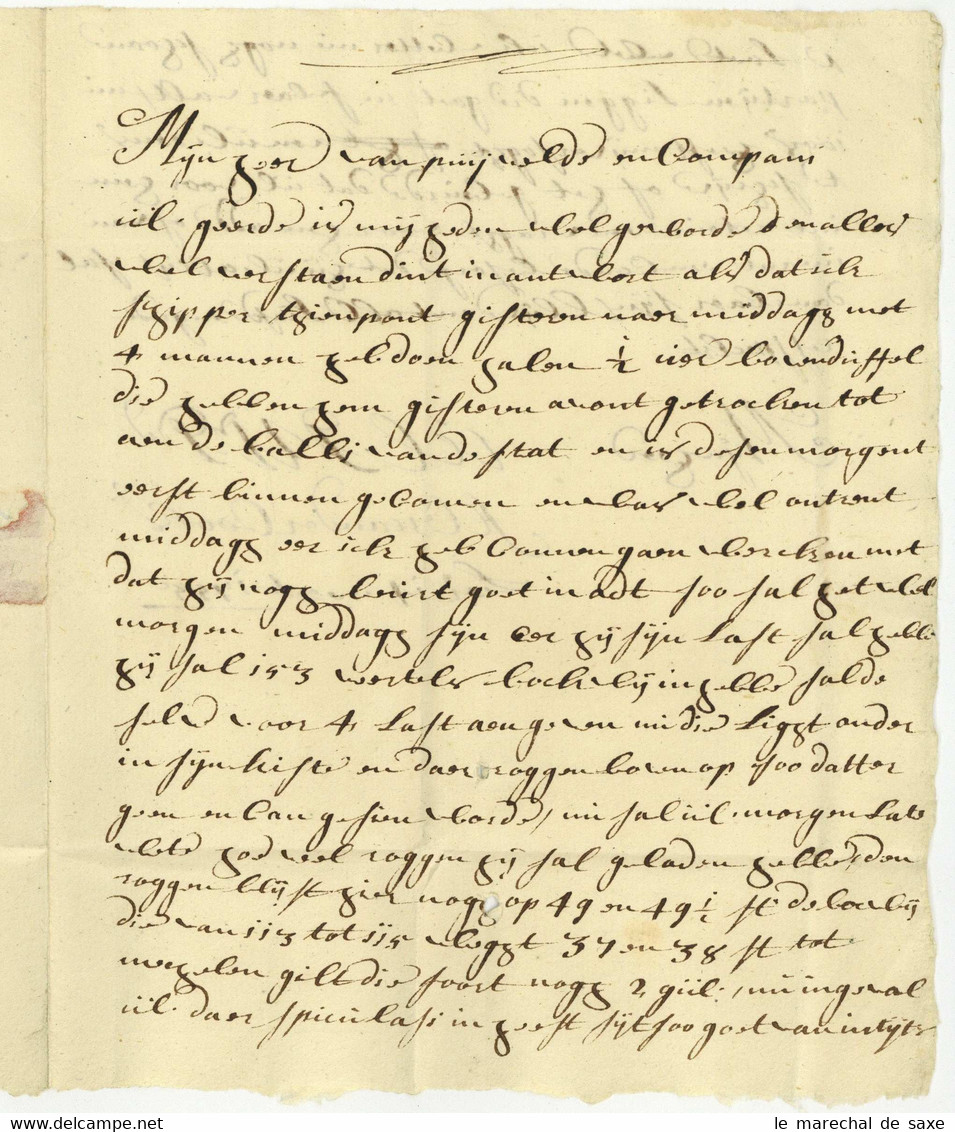 Mijn heer van puijvelde en Compani
UL. geerde is mij heden wel geworde den alles
wel verstaen dint in antwort als dat ick
schipper thienpont gisteren naer middagh met
4 mannen heb doen halen ½ uer boven duffel
die hebben hem gisteren avont getrocken tot
aen de balli van de stat en is desen morgent
eerst binnen gecomen en was wel ontrent
middagh eer ick heb connen gaen wercken met
dat hij nogh goet in adt soo sal het wel
morgen middagh sijn eer hij sijn Last sal hebbe
hij sal 153 vertels bockwij in hebbe sal de
selve voor 4 Last aen geven nu die Light onder
in sijn kiste en daer roggen boven op soo datter
geen en can gesien worde, nu sal UL. morgen Late
wete hoe veel roggen hij sal geladen hebbe, den
roggen blijft hier nogh op 49 en 49 ½ st de bocwij
die van 113 tot 115 weght 37 en 38 st tot
meghelen gilt die soort nogh 2 gul., nu ingeval
UL. daer spiculasi in heeft sijt soo goet van intijts
le marechal de saxe